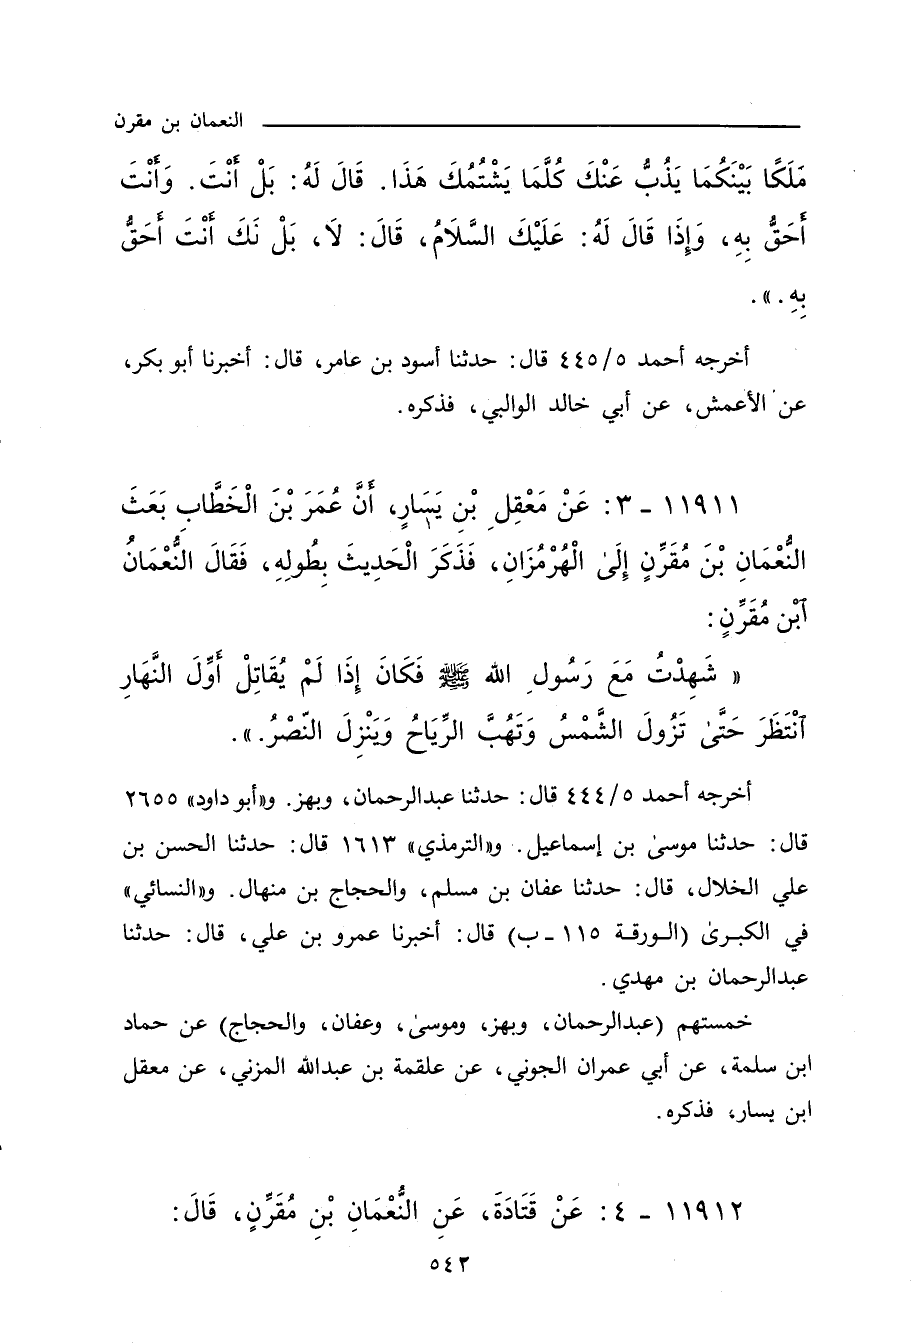 النعمان بن مقرن
مَلَكًا بَيْنَكُمَا يَذُبُّ عَنْكَ كُلَّمَا يَشْتُمُكَ هَذَا. قَالَ لَهُ: بَلْ أَنْتَ. وَأَنْتَ
أَحَقُّ بِهِ، وَإِذَا قَالَ لَهُ: عَلَيْكَ السَّلَامُ، قَالَ: لَا، بَلْ نَكَ أَنْتَ أَحَقُّ
بِهِ.».
أخرجه أحمد ٤٤٥/٥ قال: حدثنا أسود بن عامر، قال: أخبرنا أبو بكر،
عن الأعمش، عن أبي خالد الوالبي، فذكره.
١١٩١١ - ٣: عَنْ مَعْقِلِ بْنِ يَسَارٍ، أَنَّ عُمَرَ بْنَ الْخَطَّابِ بَعَثَ
النُّعْمَانِ بْنَ مُقَرِّنٍ إِلَىٰ الْهُرْمُزَانِ، فَذَكَرَ الْحَدِيثَ بِطُولِهِ، فَقَالَ النُّعْمَانُ
ٱبْنِ مُقَرِّنٍ:
« شَهِدْتُ مَعَ رَسُولِ الله ﷺ فَكَانَ إِذَا لَمْ يُقَاتِلْ أَوَّلَ النَّهَارِ
ٱنْتَظَرَ حَتَّىٰ تَزُولَ الشَّمْسُ وَتَهُبَّ الرِّيَاحُ وَيَنْزِلَ النَّصْرُ.».
أخرجه أحمد ٤٤٤/٥ قال: حدثنا عبدالرحمان، وبهز. و«أبو داود» ٢٦٥٥
قال: حدثنا موسىٰ بن إسماعيل. و«الترمذي» ١٦١٣ قال: حدثنا الحسن بن
علي الخلال، قال: حدثنا عفان بن مسلم، والحجاج بن منهال. و«النسائي»
في الكبرىٰ (الورقة ١١٥ - ب) قال: أخبرنا عمرو بن علي، قال: حدثنا
عبدالرحمان بن مهدي.
خمستهم (عبدالرحمان، وبهز، وموسىٰ، وعفان، والحجاج) عن حماد
ابن سلمة، عن أبي عمران الجوني، عن علقمة بن عبدالله المزني، عن معقل
ابن يسار، فذكره.
١١٩١٢ - ٤: عَنْ قَتَادَةَ، عَنِ النُّعْمَانِ بْنِ مُقَرِّنٍ، قَالَ:
٥٤٢